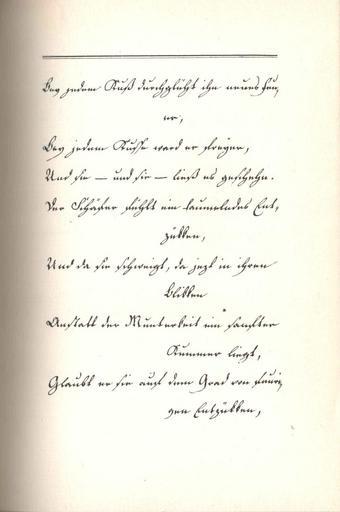 Bey jedem Kuß durchglüht ihn neues Feu,
er,
Bey jedem Kusse ward er freyer,
Und sie — und sie — ließ es geschehn.
Der Schäfer fühlt ein taumelndes Ent,
zükken,
Und da sie schweigt, da jezt in ihren
Blikken
Anstatt der Munterkeit ein sanfter
Kummer liegt,
Glaubt er sie auf dem Grad von feuri,
gen Entzükken,